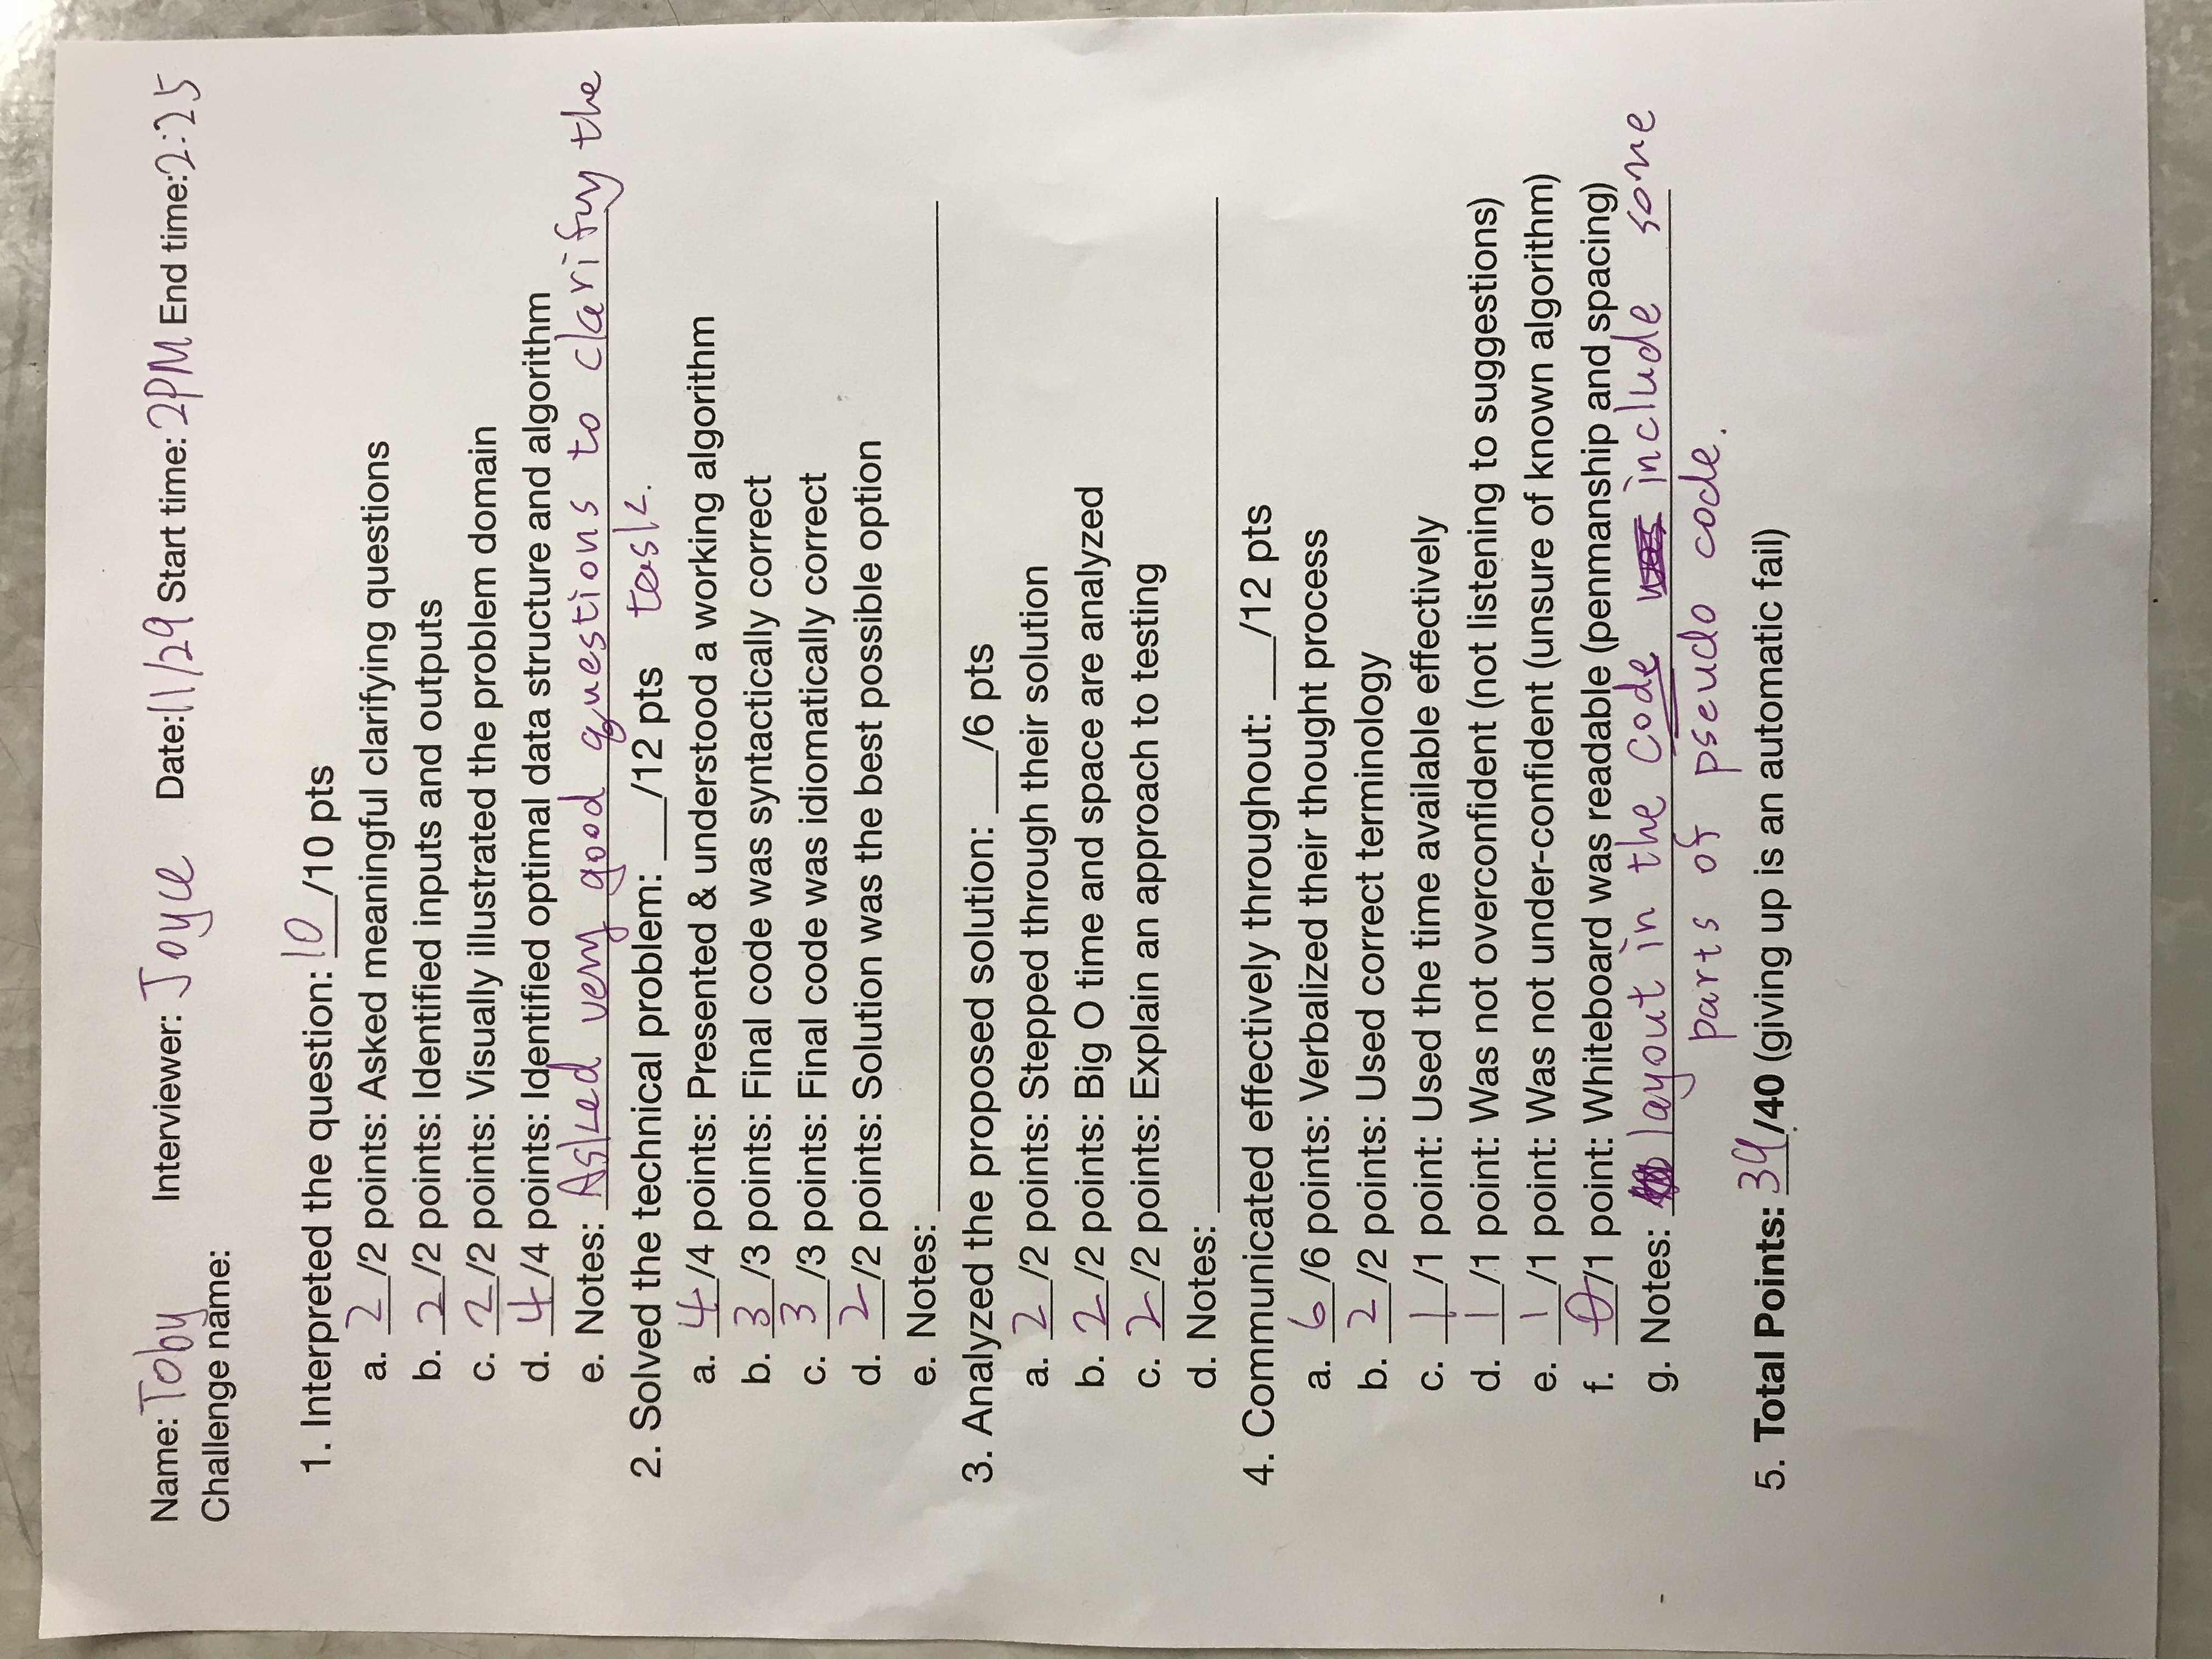 Name: Toby Interviewer: Joyce Date: 11/29 Start time: 2PM End time: 2:25
Challenge name:
1. Interpreted the question: 10/10 pts
a. 2/2 points: Asked meaningful clarifying questions
b. 2/2 points: Identified inputs and outputs
c. 2/2 points: Visually illustrated the problem domain
d. 4/4 points: Identified optimal data structure and algorithm
e. Notes: Asked very good questions to clarify the
2. Solved the technical problem: ___/12 pts task.
a. 4/4 points: Presented & understood a working algorithm
b. 3/3 points: Final code was syntactically correct
c. 3/3 points: Final code was idiomatically correct
d. 2/2 points: Solution was the best possible option
e. Notes:
3. Analyzed the proposed solution: ___/6 pts
a. 2/2 points: Stepped through their solution
b. 2/2 points: Big O time and space are analyzed
c. 2/2 points: Explain an approach to testing
d. Notes:
4. Communicated effectively throughout: ___/12 pts
a. 6/6 points: Verbalized their thought process
b. 2/2 points: Used correct terminology
c. 1/1 point: Used the time available effectively
d. 1/1 point: Was not overconfident (not listening to suggestions)
e. 1/1 point: Was not under-confident (unsure of known algorithm)
f. 0/1 point: Whiteboard was readable (penmanship and spacing)
g. Notes: layout in the code include some
parts of pseudo code.
5. Total Points: 39/40 (giving up is an automatic fail)